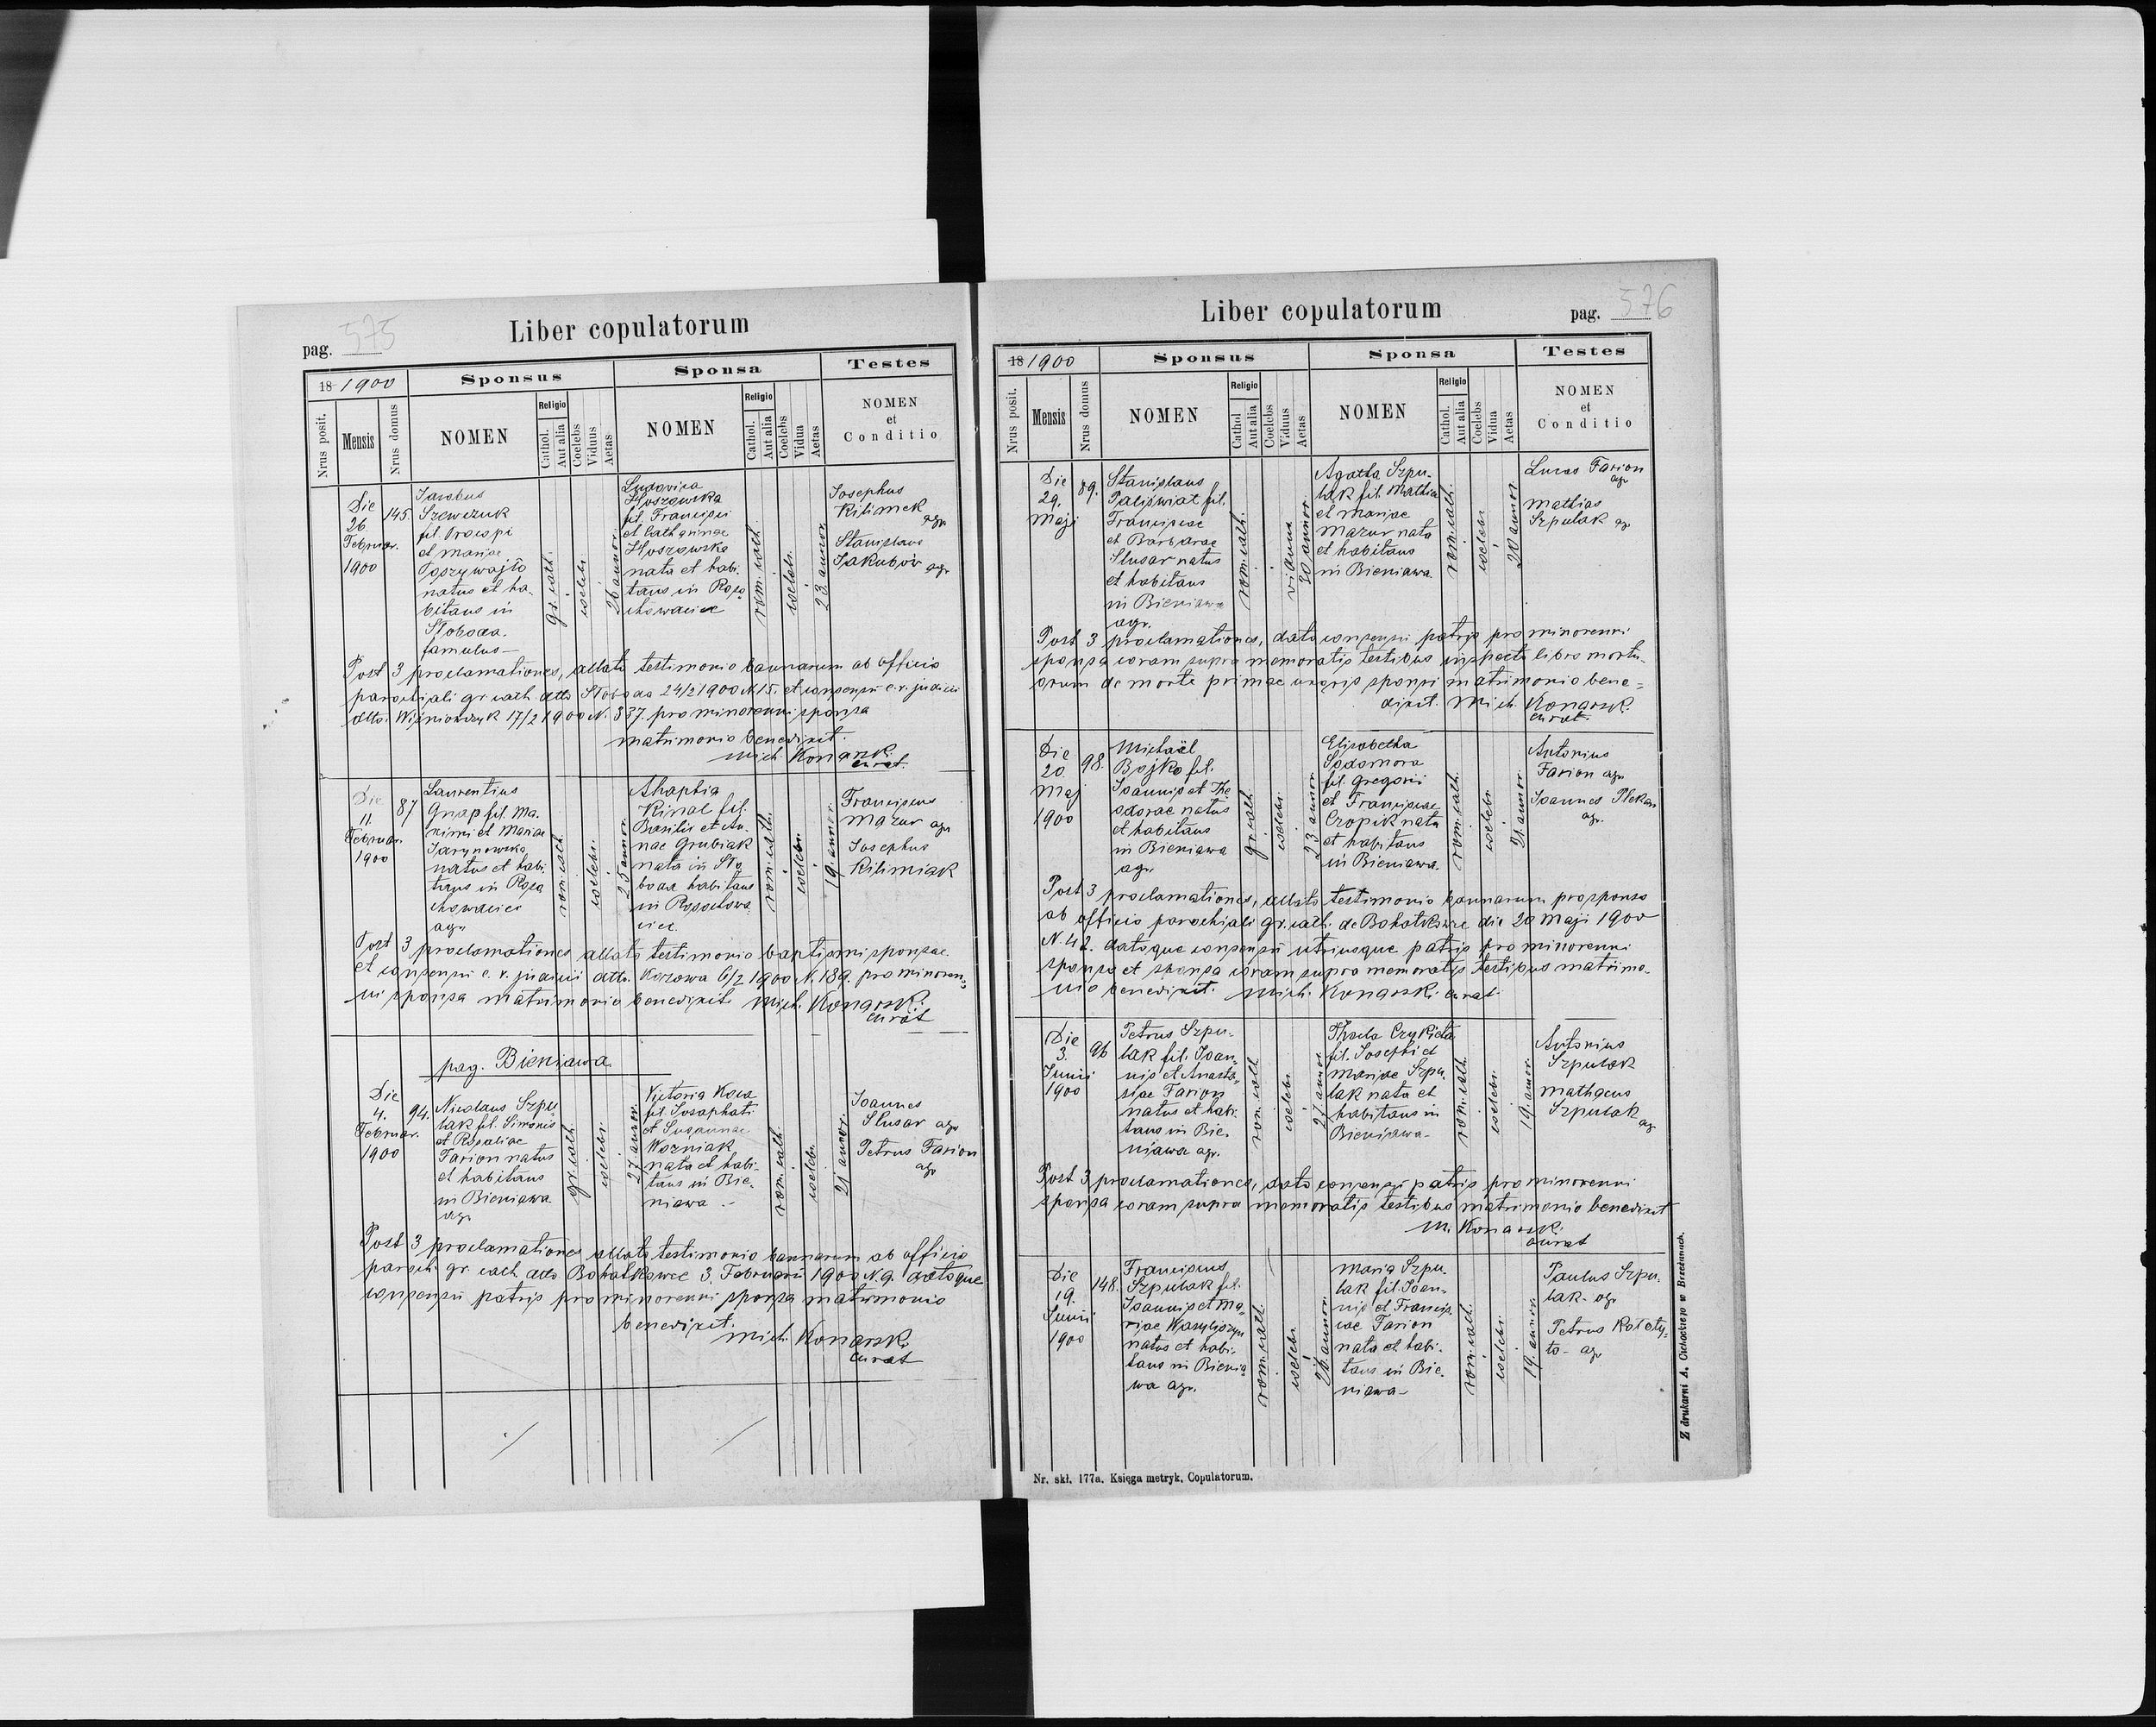 575
pag.
Liber copulatorum
18 1900
Sponsus
Sponsa
Testes
Nrus posit.
Mensis
Nrus domus
NOMEN
Religio
Cathol.
Aut alia
Coelebs
Viduus
Aetas
NOMEN
Religio
Cathol.
Aut alia
Coelebs
Vidua
Aetas
NOMEN
et
Conditio
Die
26.
Februar.
1900
145.
Jacobus
Szewczuk
fil. Procopi
et Mariae
natus et ha-
bitans in
Słoboda.
famulus
gr. cath.
coelebs
26 annor.
Ludovica
Hoszowska
fil. Francisci
et Catharinae
Hoszowska
nata et habi-
tans in Roso
chowaciec
rom. cath.
coelebs.
23 annor.
Josephus
Kilimek
agr.
Stanislaus
Jakubów agr.
Post 3 proclamationes, allato testimonio bannorum ab officio
parochiali gr. cath. dtto Słoboda 24/2 1900 N. 15. et consensu c. r. judicii
dtto. Wiśniowczyk 17/2 1900 N. 837. pro minorenni sponsa
matrimonio benedixit.
Mich. Konarski
curat.
Die
11.
Februar.
1900
87
Laurentius
Gnap fil. Ma-
ximi et Mariae
Jarynowska
natus et habi-
tans in Roso
chowaciec
agr.
rom. cath.
coelebs.
25 annor.
Ahaphia
Kinal fil.
Basilii et An-
nae Grubiak
nata in Sło
boda habitans
in Rosochowa
ciec.
rom. cath.
coelebs
19. annor.
Franciscus
Mazur agr.
Josephus
Kilimiak
Post 3 proclamationes allato testimonio baptismi sponsae
et consensu c. r. judicii dtto. Kozowa 6/2 1900 N. 189. pro minoren-
ni sponsa matrimonio benedixit Mich. Konarski
curat
pag. Bieniawa
Die
4.
Februar.
1900
94.
Nicolaus Szpu
lak fil. Simonis
et Rosaliae
Farion natus
et habitans
in Bieniawa
agr.
gr. cath.
coelebs.
27 annor.
Victoria Koca
fil. Josaphati
et Susannae
Woźniak
nata et habi-
tans in Bie-
niawa -
rom. cath.
coelebs.
21 annor.
Joannes
Slusar agr.
Petrus Farion
agr.
Post 3 proclamationes allato testimonio bannorum ab officio
paroch. gr. cath. dtto Bohatkowce 3. Februarii 1900 N. 9. datoque
consensu patris pro minorenni sponsa matrimonio
benedixit.
Mich. Konarski
curat
Liber copulatorum
pag. 576
18 1900
Sponsus
Sponsa
Testes
Nrus posit.
Mensis
Nrus domus
NOMEN
Religio
Cathol
Aut alia
Coelebs
Viduus
Aetas
NOMEN
Religio
Cathol.
Aut alia
Coelebs
Vidua
Aetas
NOMEN
et
Conditio
Die
29.
Maji
89.
Stanislaus
Paliświat fil.
Franciscae
et Barbarae
Slusar natus
et habitans
in Bieniawa
agr.
rom. cath.
viduus
30 annor.
Agatha Szpu-
lak fil. Mathia
et Mariae
Mazur nata
et habitans
in Bieniawa.
rom. cath.
coelebs.
20 annor.
Lucas Farion
agr
Mathias
Szpulak agr.
Post 3 proclamationes, dato consensu patris pro minorenni
sponsa coram supra memoratis testibus inspecto libro mortu-
orum de morte primae uxoris sponsi matrimonio bene=
dixit. Mich. Konarski.
curat.
Die
20.
Maj
1900
98.
Michaël
Bojko fil.
Joannis et The
odorae natus
et habitans
in Bieniawa
agr.
gr. cath.
coelebs.
23 annor.
Elisabetha
Sodomora
fil. Gregorii
et Franciscae
Cropik nata
et habitans
in Bieniawa.
rom. cath.
coelebs.
21. annor.
Antonius
Farion agr.
Joannes Plekan
agr.
Post 3 proclamationes, allato testimonio bannorum pro sponso
ab officio parochiali gr. cath. de Bohatkowce die 20 Maji 1900
N. 42. datoque consensu utriusque patris pro minorenni
sponso et sponsa coram supra memoratis testibus matrimo-
nio benedixit. Mich. Konarski curat
Die
3.
Junii
1900
96
Petrus Szpu-
lak fil. Joan-
nis et Anasta-
siae Farion
natus et habi-
tans in Bie-
niawa agr.
rom. cath.
coelebs.
27 annor.
Thecla Czykieta
fil. Josephi et
Mariae Szpu-
lak nata et
habitans in
Bieniawa-
rom. cath.
coelebs.
19. annor.
Antonius
Szpulak
Mathaeus
Szpulak
agr
Post 3 proclamationes, dato consensu patris pro minorenni
sponsa coram supra memoratis testibus matrimonio benedixit
M. Konarski.
curat
Die
19.
Junii
1900
148.
Franciscus
Szpulak fil.
Joannis et Ma-
riae Wasyliszyn
natus et habi-
tans in Bienia
wa agr.
rom. cath.
coelebs.
26 annor.
Maria Szpu-
lak fil. Joan-
nis et Francis
cae Farion
nata et habi-
tans in Bie-
niawa-
rom. cath.
coelebs.
19. annor.
Paulus Szpu-
lak- agr.
Petrus Kołoty-
ło- agr
Nr. skł. 177a. Księga metryk, Copulatorum.
Z drukarni A. Ciehockiego w Brzeżanach.